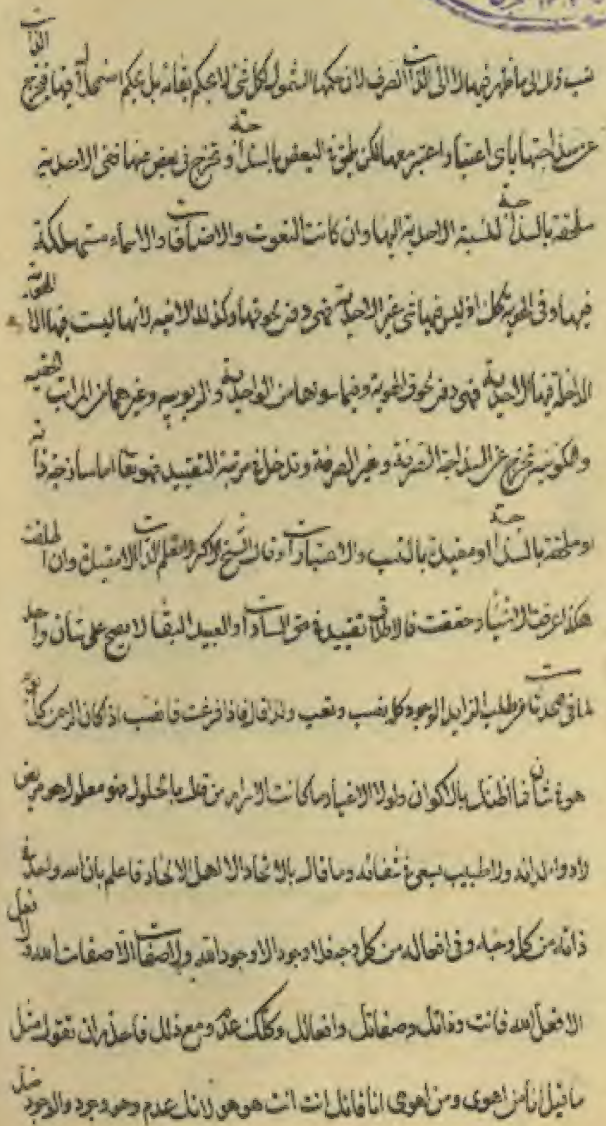 نسب ذلك الى ما ظهر فيها لا الى الذات الصرف لان حكمها الشمول لكل شئ لا بحكم بقائه بل بحكم اضمحلاله فيها فخرج
عن سذاجتها باى اعتبار اعتبر معها لكن ملحقة البعض بالسذاجة وتخرج فى بعض منها فنى الاحدية
ملحقة بالسذاجة لنسبة الاحدية اليها وان كانت النعوت والاضافات والاسماء مستهلكة
فيها وفى الهوية كل اذ ليس فيها شئ غير الاحدية فهى دفن نحوقها وكذلك الانية لانها ليست فيها الا
الداخلة فيها الاحدية فهى دفن نحوق الهوية وفيما سواها من الواحدية والربوبية وغيرهما من المراتب الحقية
والكونية تخرج عن السذاجة الصرفة وغير الصرفة وتدخل فى مرتبة التقييد فهو تعا اما ساذجة ذاته
او ملحقة بالسذاجة او مقيدة بالنسب والاعتبارات وقال الشيخ الاكبر اعلم الذات لا مقيدة وان اطلقت
هكذا عرفت الاشياء وحققت فالاطلاق تقييد فى حق السادات والعبيد البقا لا يصح على شان واحد
لما فى محدثات من طلب الزايد الوجود كله نصب وتعب ولذا قال فاذا فرغت فانصب اذ كان الرحمن كل يوم
هو فى شأن فما ظنك بالاكوان ولولا الاغيار ما كانت الاسرار من قال بالحلول فهو معلول هو مريض
لا دواء لدائه ولا طبيب يسعى فى شفائه وما قال بالاتحاد الا اهل الالحاد فاعلم بان الله واحد فى
ذاته من كل وجه وفى افعاله من كل وجه فلا وجود الا وجود الله ولا صفات الا صفات الله ولا فعل
الا فعل الله فانت وذاتك وصفاتك وافعالك وكلك عدم ومع ذلك فاحذر ان تقول مثل
ما قيل انا من اهوى ومن اهوى انا فانك انت انت هو هو لانك عدم وهو وجود والوجود ضد